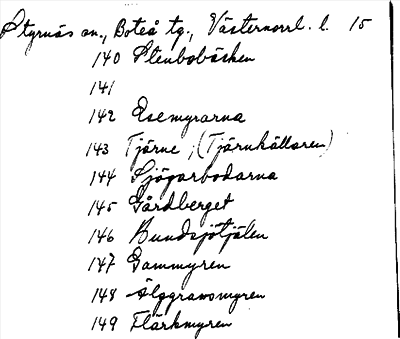 Styrnäs sn., Boteå tg., Västernorrl. l. 15
140 Stenbobäcken
141
142 Esemyrarna
143 Tjärne ; (Tjärnkällaren)
144 Sjögarbodarna
145 Gårdberget
146 Bundsjötjälen
147 Gammyren
148 Älggransmyren
149 Flärkmyren